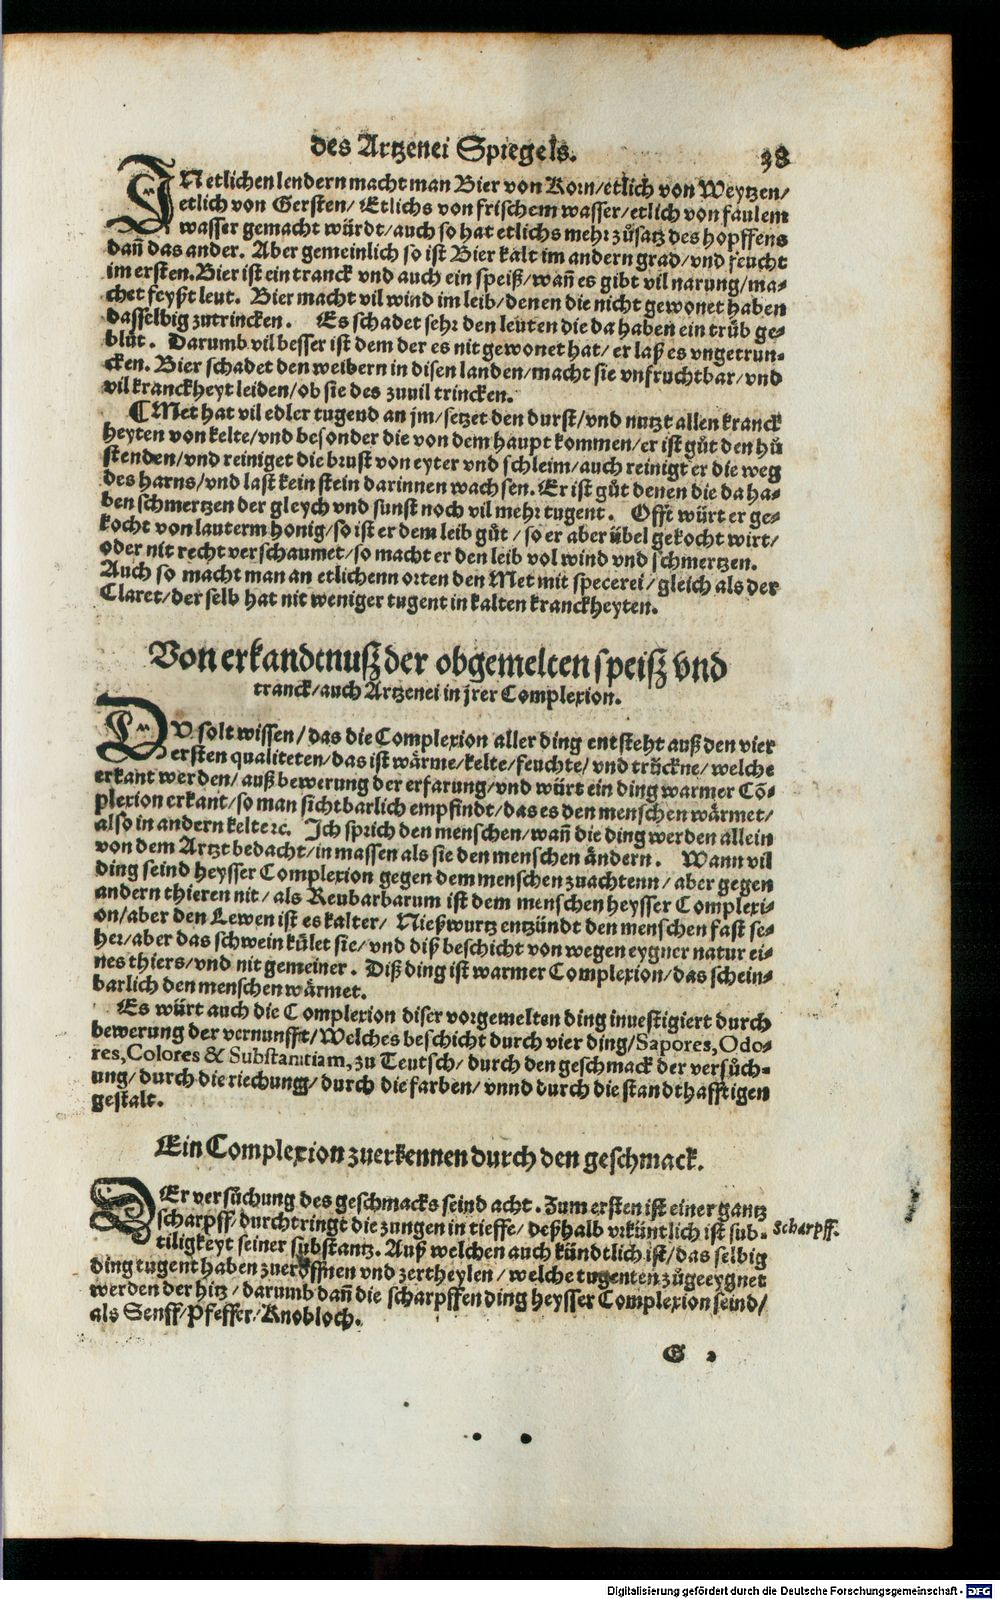 des Artzenei Spiegels. 38
IN etlichen lendern macht man Bier von Korn/etlich von Weytzen/
etlich von Gersten/ Etlichs von frischem wasser/etlich von faulem
wasser gemacht würdt/auch so hat etlichs mehr zůsatz des hopffens
dañ das ander. Aber gemeinlich so ist Bier kalt im andern grad/vnd feucht
im ersten. Bier ist ein tranck vnd auch ein speiß/wañ es gibt vil narung/ma-
chet feyßt leut. Bier macht vil wind im leib/denen die nicht gewonet haben
dasselbig zutrincken. Es schadet sehr den leuten die da haben ein trüb ge-
blüt. Darumb vil besser ist dem der es nit gewonet hat/ er laß es vngetrun-
cken. Bier schadet den weibern in disen landen/macht sie vnfruchtbar/vnd
vil kranckheyt leiden/ob sie des zuuil trincken.
¶ Met hat vil edler tugend an jm/setzet den durst/vnd nutzt allen kranck
heyten von kelte/vnd besonder die von dem haupt kommen/er ist gůt den hů
stenden/vnd reiniget die brust von eyter vnd schleim/auch reinigt er die weg
des harns/vnd last kein stein darinnen wachsen. Er ist gůt denen die da ha-
ben schmertzen der gleych vnd sunst noch vil mehr tugent. Offt würt er ge-
kocht von lauterm honig/so ist er dem leib gůt/ so er aber übel gekocht wirt/
oder nit recht verschaumet/so macht er den leib vol wind vnd schmertzen.
Auch so macht man an etlichenn orten den Met mit specerei/gleich als der
Claret/der selb hat nit weniger tugent in kalten kranckheyten.
Von erkandtnusz der obgemelten speisz vnd
tranck/auch Artzenei in jrer Complexion.
DV solt wissen/das die Complexion aller ding entsteht auß den vier
ersten qualiteten/das ist wärme/kelte/feuchte/vnd trückne/welche
erkant werden/auß bewerung der erfarung/vnd würt ein ding warmer Cõ-
plexion erkant/so man sichtbarlich empfindt/das es den menschen wärmet/
also in andern kelte ꝛc. Ich sprich den menschen/wañ die ding werden allein
von dem Artzt bedacht/in massen als sie den menschen ändern. Wann vil
ding seind heysser Complexion gegen dem menschen zuachtenn/aber gegen
andern thieren nit/als Reubarbarum ist dem menschen heysser Complexi-
on/aber den Lewen ist es kalter/ Nießwurtz entzündt den menschen fast se-
her/aber das schwein kület sie/vnd diß beschicht von wegen eygner natur ei-
nes thiers/vnd nit gemeiner. Diß ding ist warmer Complexion/das schein-
barlich den menschen wärmet.
Es würt auch die Complexion diser vorgemelten ding inuestigiert durch
bewerung der vernunfft/Welches beschicht durch vier ding/Sapores, Odo-
res, Colores & Substantiam, zu Teutsch/durch den geschmack der versůch-
ung/durch die riechung/durch die farben/vnnd durch die standthafftigen
gestalt.
Ein Complexion zuerkennen durch den geschmack.
DEr versůchung des geschmacks seind acht. Zum ersten ist einer gantz
scharpff/durchtringt die zungen in tieffe/deßhalb vrküntlich ist sub- Scharpff.
tiligkeyt seiner substantz. Auß welchen auch kündtlich ist/das selbig
ding tugent haben zueröffnen vnd zertheylen/welche tugenten zůgeeygnet
werden der hitz/darumb dañ die scharpffen ding heysser Complexion seind/
als Senff/Pfeffer/Knobloch.
G
Digitalisierung gefördert durch die Deutsche Forschungsgemeinschaft - DFG